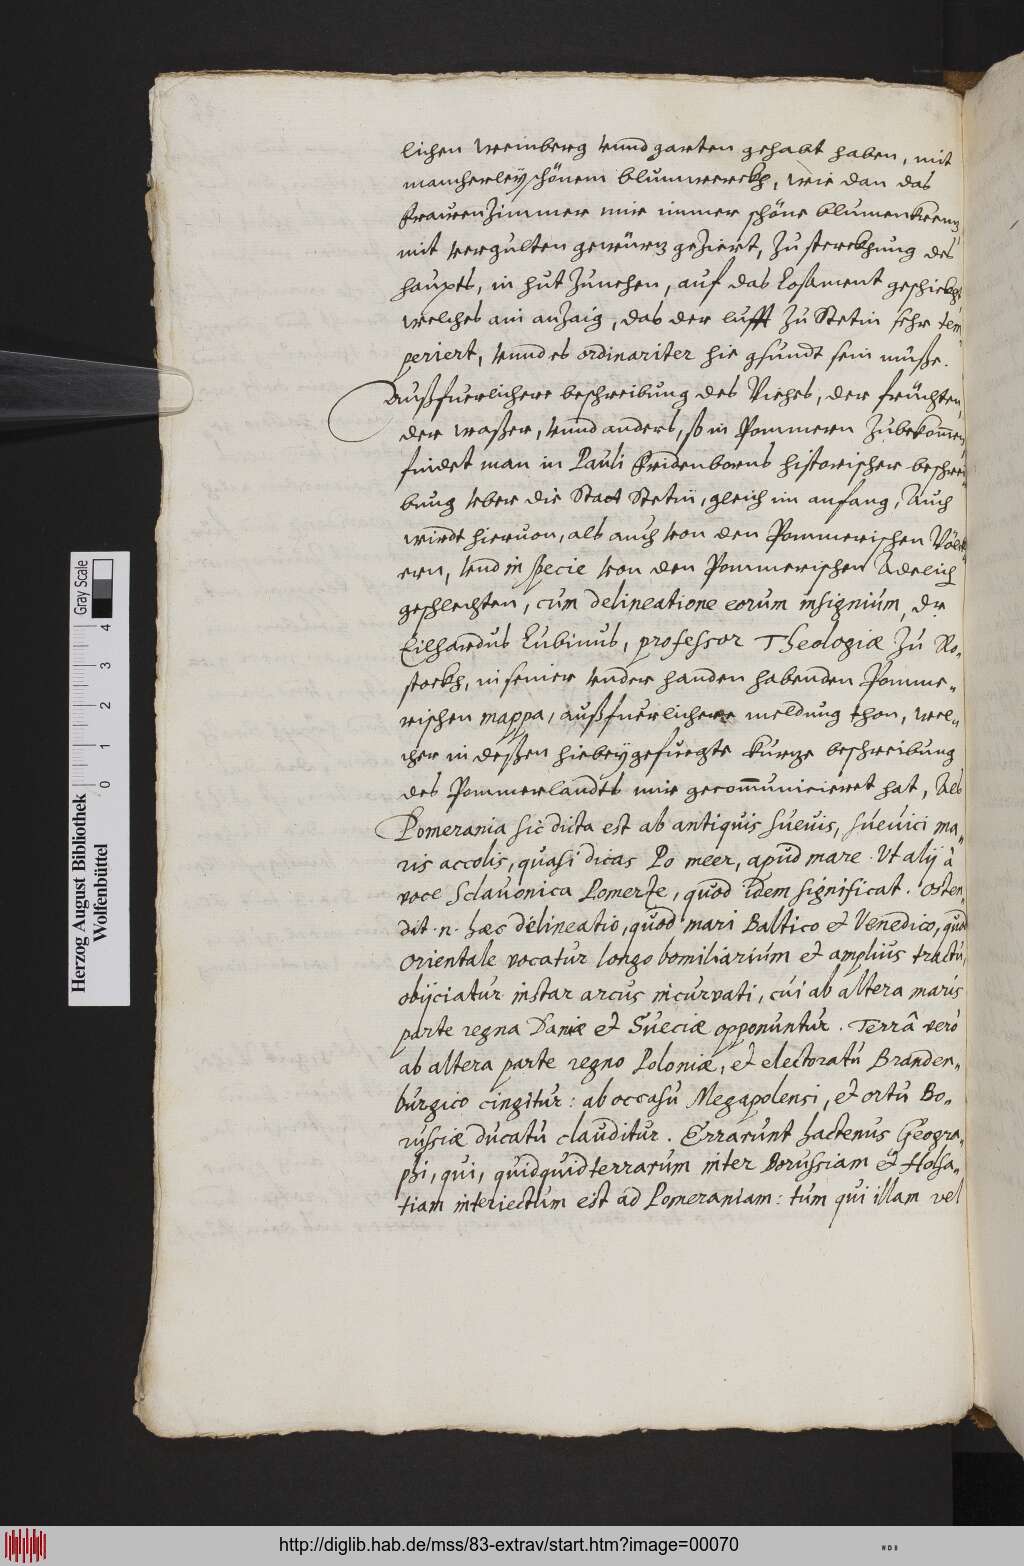 lichen weinberg vnnd garten gehabt haben, mit
mancherley schönem blumwerckh, wie dan das
frauenzimmer mir immer schöne blumenkrenz,
mit vergulten gewürz geziert, zu sterckhung des
haupts, in hut zunehen, auf das Losament geschickht,
welches ain anzaig, das der lufft zu Stetin sehr tem„
periert, vnnd es ordinariter hie gsundt sein müße.
Außfuerlichere beschreibung des Viehes, der früchten,
der waßer, vnnd anders, so in Pommern zubekommen,
findet man in Pauli Fridenborns historischer beschrei„
bung vber die Statt Stetin, gleich im anfang, Auch
wirdt hieruon, als auch von den Pommerischen Völck„
ern, vnd in specie von den Pommerischen Adelich
geschlechten, cum delineatione eorum insignium, dr
Eilhardus Lubinus, professor Theologiæ zu Ro„
stockh, in seiner vnder handen habenden Pomme„
rischen mappa, außfuerlichere meldung thon, wel„
cher in deßen hiebeygefuegte kurze beschreibung
des Pommerlandts mir gecommunicieret hat, Als
Pomerania sic dicta est ab antiquis sueuis, sueuici ma„
ris accolis, quasi dicas Po meer, apud mare. Vt alij à
voce Sclauonica Pomerze, quod idem significat. Osten„
dit .n. hæc delineatio, quod mari Baltico et Venedico, quod
orientale vocatur longo 60 miliarium et amplius tractu,
obijciatur instar arcus incurvati, cui ab altera maris
parte regna Daniæ et Sueciæ opponuntur. Terrâ verò
ab altera parte regno Poloniæ, et electoratu Branden„
burgico cingitur: ab occasu Megapolensi, et ortu Bo„
russiæ ducatu clauditur. Errarunt hactenus Geogra„
phi, qui, quidquid terrarum inter Borussiam et Holsa„
tiam interiectum est ad Pomeraniam: tum qui illam vel
Herzog August Bibliothek
Wolfenbüttel
0 1 2 3 4
Gray Scale
http://diglib.hab.de/mss/83-extrav/start.htm?image=00070